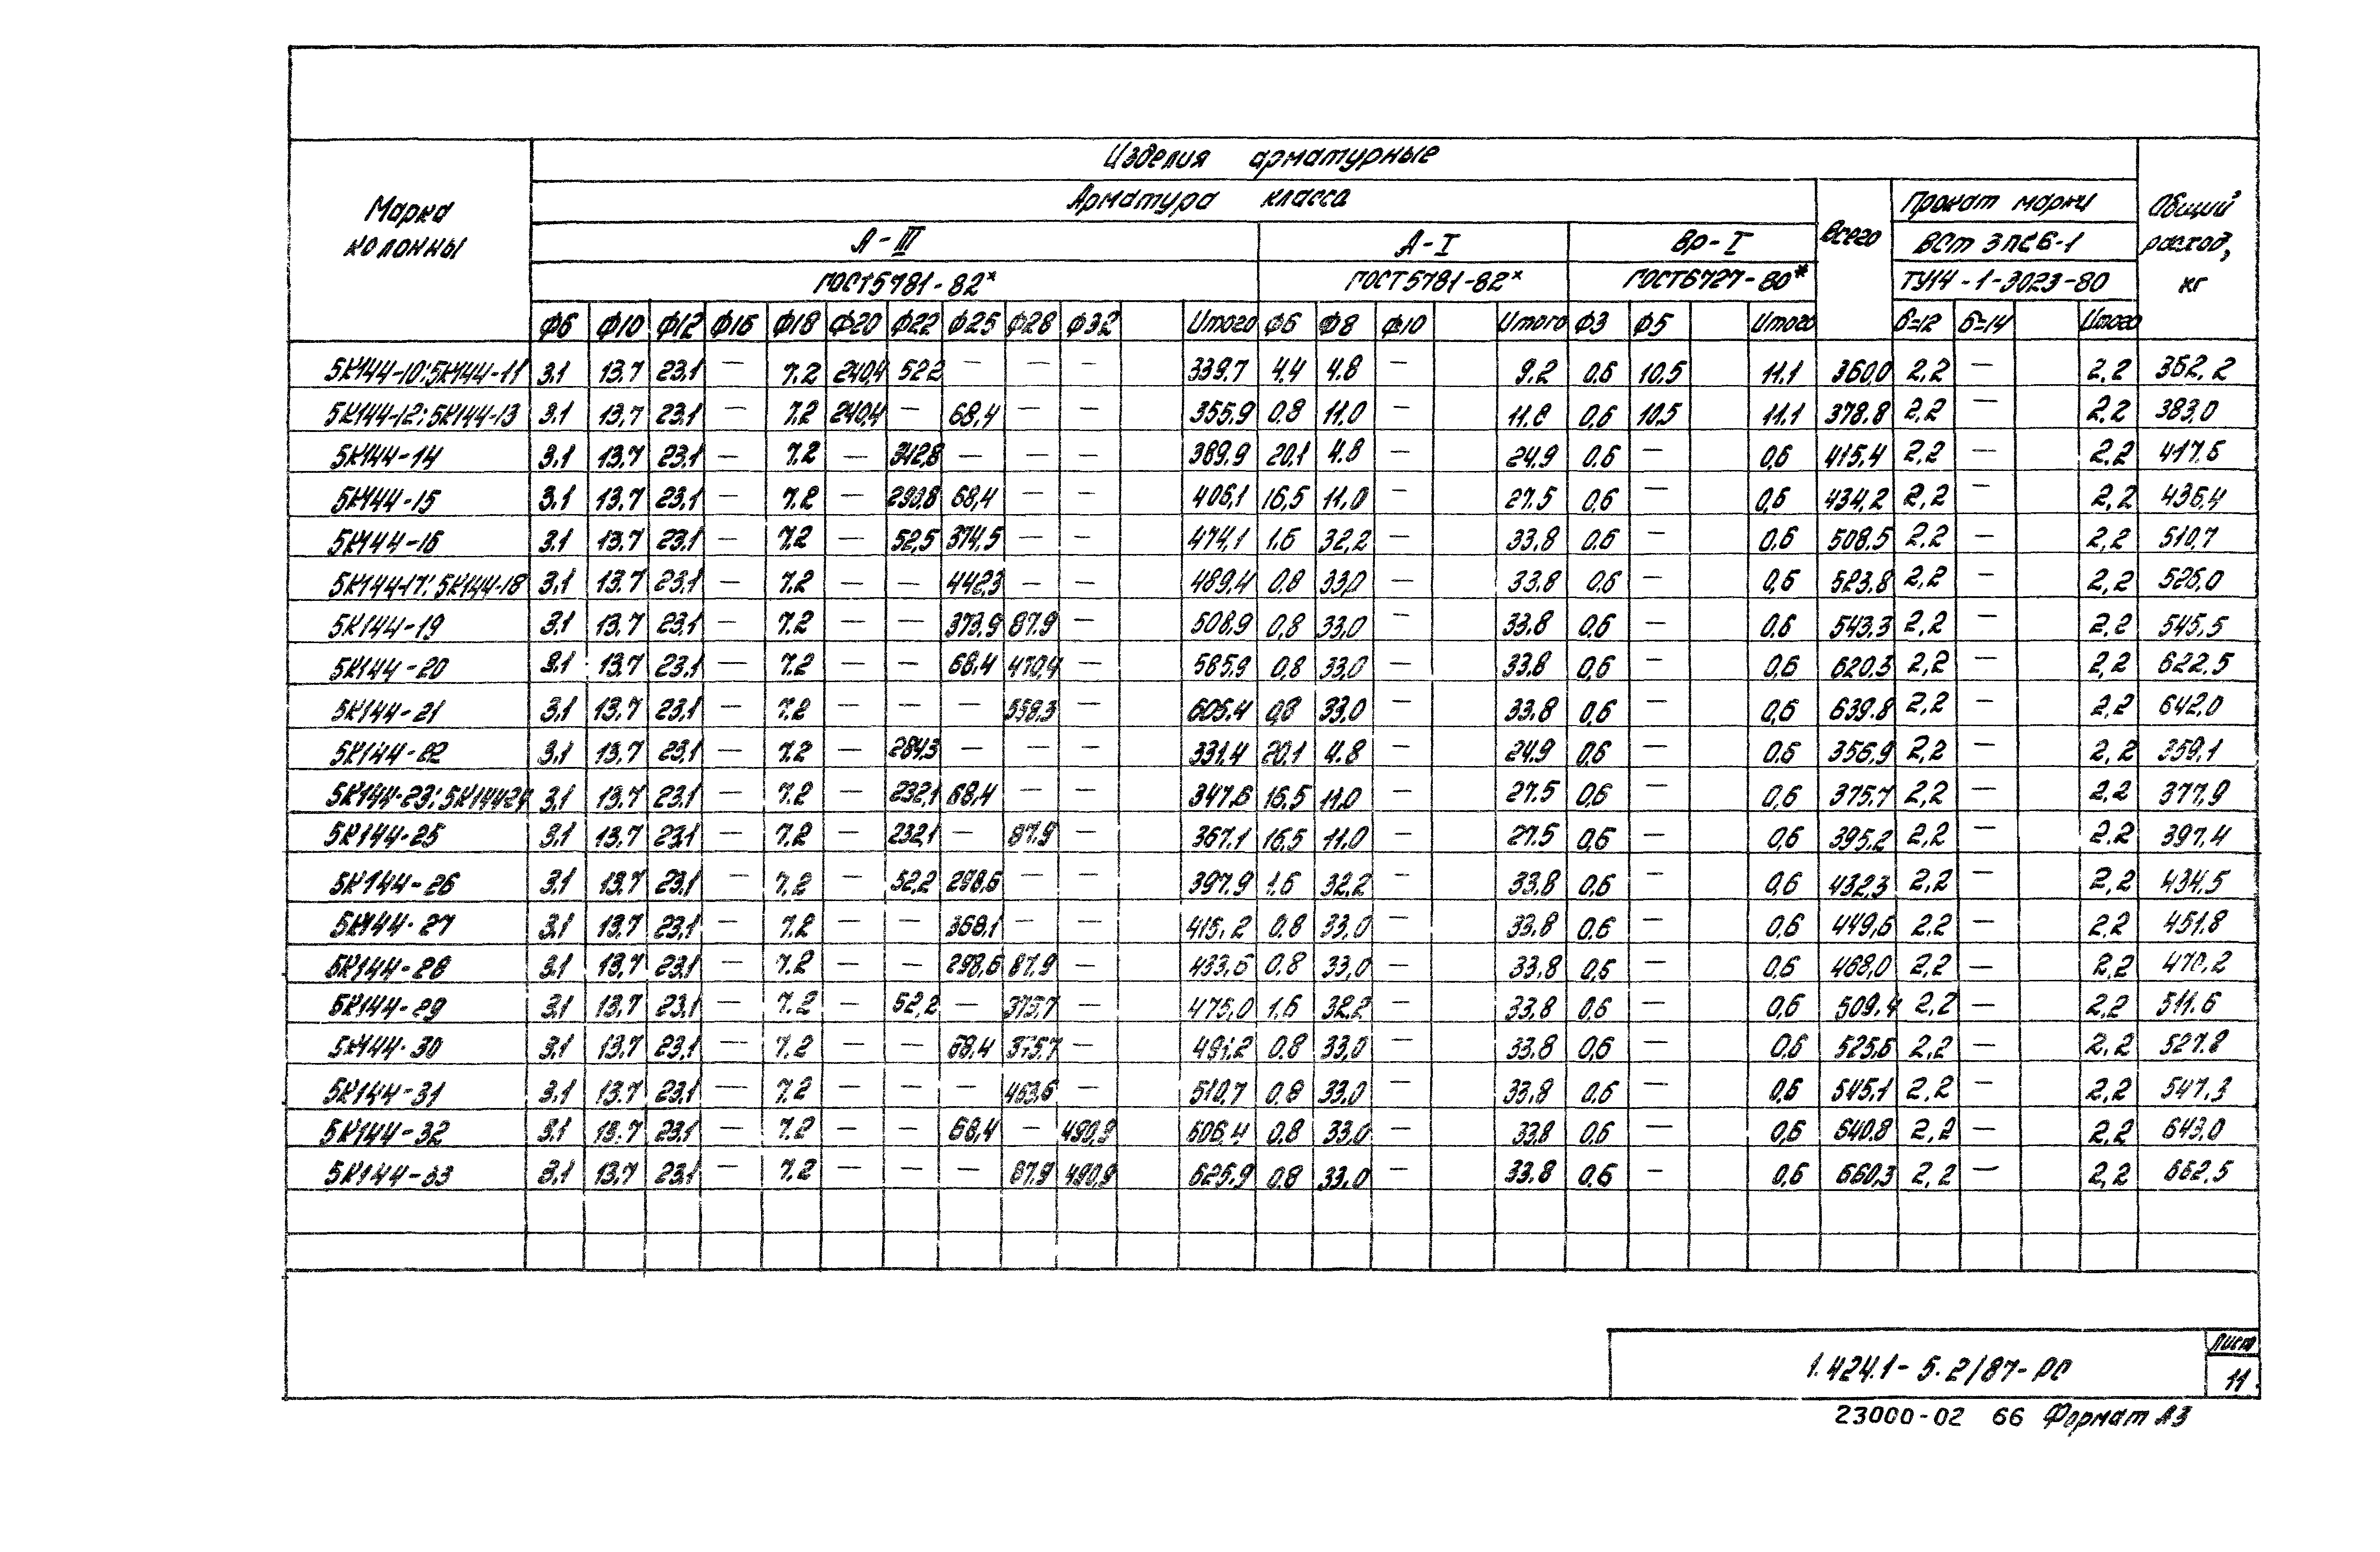 Изделия арматурные
Марка колонны
Арматура класса
Всего
Прокат марки
Общий расход, кг
А-III
А-I
Вр-I
ВСт 3пс6-1
ГОСТ5781-82*
ГОСТ5781-82*
ГОСТ6727-80*
ТУ14-1-3023-80
Ф6 Ф10 Ф12 Ф16 Ф18 Ф20 Ф22 Ф25 Ф28 Ф32 Итого Ф6 Ф8 Ф10 Итого Ф3 Ф5 Итого б=12 б=14 Итого
5К144-10;5К144-11 3.1 13.7 23.1 — 7.2 240,4 52.2 — — — 339.7 4.4 4.8 — 9.2 0.6 10.5 11.1 360,0 2,2 — 2,2 362,2
5К144-12;5К144-13 3.1 13,7 23,1 — 7.2 240,4 — 68,4 — — 355,9 0.8 11,0 — 11.8 0,6 10.5 11.1 378.8 2,2 — 2,2 383,0
5К144-14 3.1 13.7 23,1 — 7.2 — 342,8 — — — 389.9 20,1 4.8 — 24.9 0.6 — 0,6 415.4 2,2 — 2,2 417.6
5К144-15 3.1 13.7 23,1 — 7.2 — 290,8 68,4 — — 406,1 16,5 11,0 — 27.5 0,6 — 0,6 434,2 2,2 — 2,2 436,4
5К144-16 3.1 13.7 23,1 — 7.2 — 52,5 374,5 — — 474,1 1.6 32,2 — 33.8 0.6 — 0.6 508.5 2.2 — 2,2 510,7
5К144-17; 5К144-18 3,1 13.7 23,1 — 7.2 — — 442,3 — — 489,4 0,8 33,0 — 33.8 0.6 — 0,6 523.8 2,2 — 2,2 526,0
5К144-19 3.1 13.7 23,1 — 7.2 — — 373,9 87.9 — 508,9 0,8 33,0 — 33.8 0,6 — 0.6 543.3 2,2 — 2.2 545.5
5К144-20 3.1 13.7 23,1 — 7.2 — — 68,4 470,4 — 585,9 0,8 33,0 — 33.8 0,6 — 0,6 620.3 2,2 — 2,2 622.5
5К144-21 3.1 13.7 23,1 — 7.2 — — — 558,3 — 605.4 0,8 33.0 — 33.8 0,6 — 0,6 639.8 2,2 — 2,2 642,0
5К144-22 3.1 13,7 23,1 — 7.2 — 284,3 — — — 331.4 20.1 4.8 — 24.9 0,6 — 0.6 356,9 2,2 — 2,2 359,1
5К144-23; 5К144-24 3,1 13.7 23,1 — 7.2 — 232,1 68,4 — — 347.6 16.5 11,0 — 27.5 0,6 — 0,6 375.7 2,2 — 2,2 377,9
5К144-25 3.1 13.7 23,1 — 7.2 — 232,1 — 87.9 — 367.1 16,5 11.0 — 27.5 0,6 — 0,6 395.2 2,2 — 2.2 397,4
5К144-26 3.1 13.7 23,1 — 7.2 — 52,2 298.6 — — 397.9 1.6 32.2 — 33.8 0,6 — 0,6 432,3 2,2 — 2,2 434.5
5К144-27 3.1 13.7 23,1 — 7.2 — — 368,1 — — 415,2 0.8 33,0 — 33.8 0.6 — 0,6 449,6 2.2 — 2,2 451.8
5К144-28 3.1 13,7 23,1 — 7.2 — — 298,6 87,9 — 433.6 0.8 33,0 — 33.8 0.6 — 0,6 468,0 2.2 — 2,2 470.2
5К144-29 3.1 13.7 23,1 — 7.2 — 52,2 — 375,7 — 475,0 1.6 32,2 — 33,8 0,6 — 0,6 509,4 2,2 — 2,2 511.6
5К144-30 3.1 13.7 23,1 — 7.2 — — 68,4 375,7 — 491,2 0.8 33,0 — 33.8 0,6 — 0.6 525,6 2,2 — 2,2 527.8
5К144-31 3.1 13.7 23,1 — 7.2 — — — 463,6 — 510,7 0.8 33,0 — 33.8 0.6 — 0,6 545,1 2,2 — 2,2 547,3
5К144-32 3.1 13.7 23,1 — 7.2 — — 68,4 — 490,9 606,4 0.8 33,0 — 33,8 0.6 — 0,6 640.8 2,2 — 2,2 643,0
5К144-33 3.1 13.7 23,1 — 7.2 — — — 87.9 490,9 625.9 0.8 33.0 — 33.8 0.6 — 0,6 660,3 2,2 — 2,2 662.5
1.424.1-5.2/87-РС
Лист
11
23000-02 66 Формат А3